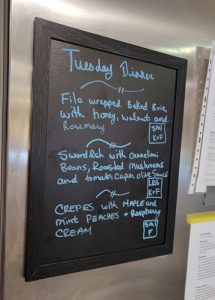 Tuesday Dinner
Filo wrapped Baked Brie,
with honey, walnut and
Rosemary
Swordfish with cannelini
Beans, Roasted Mushrooms
and tomato, caper, olive sauce
CREPES with MAPLE and
mint PEACHES + Raspberry
CREAM